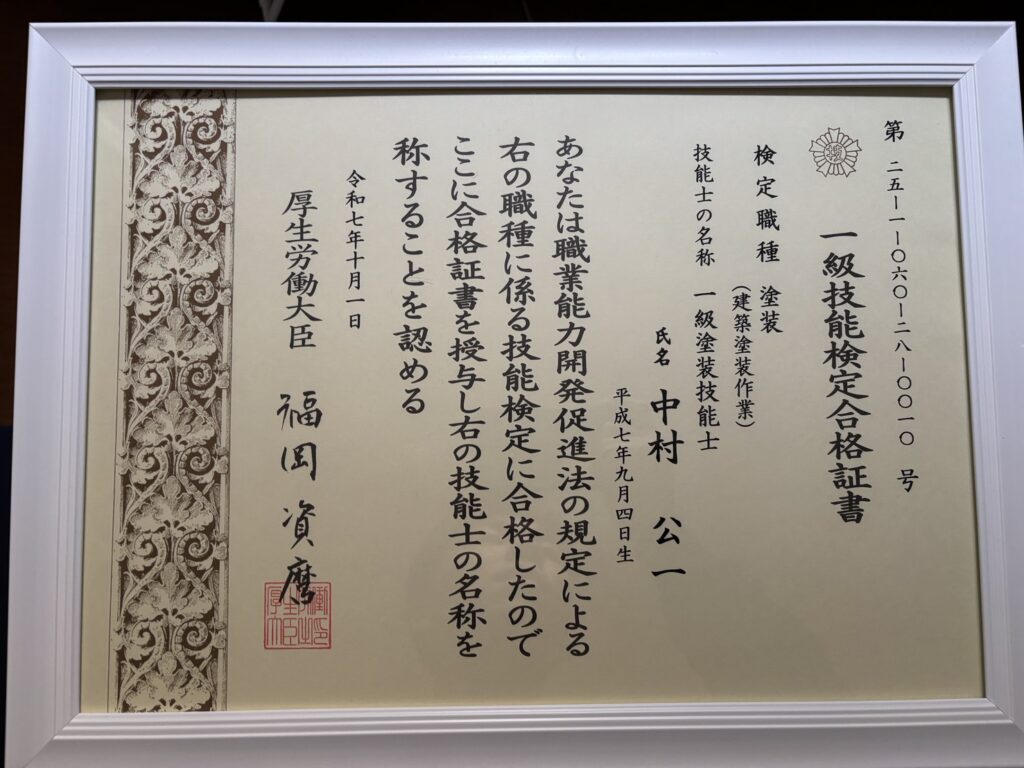 第 二五-一-〇六〇-二八-〇〇一〇 号
一級技能検定合格証書
検定職種 塗装
(建築塗装作業)
技能士の名称 一級塗装技能士
氏名 中村 公一
平成七年九月四日生
あなたは職業能力開発促進法の規定による
右の職種に係る技能検定に合格したので
ここに合格証書を授与し右の技能士の名称を
称することを認める
令和七年十月一日
厚生労働大臣 福岡 資麿